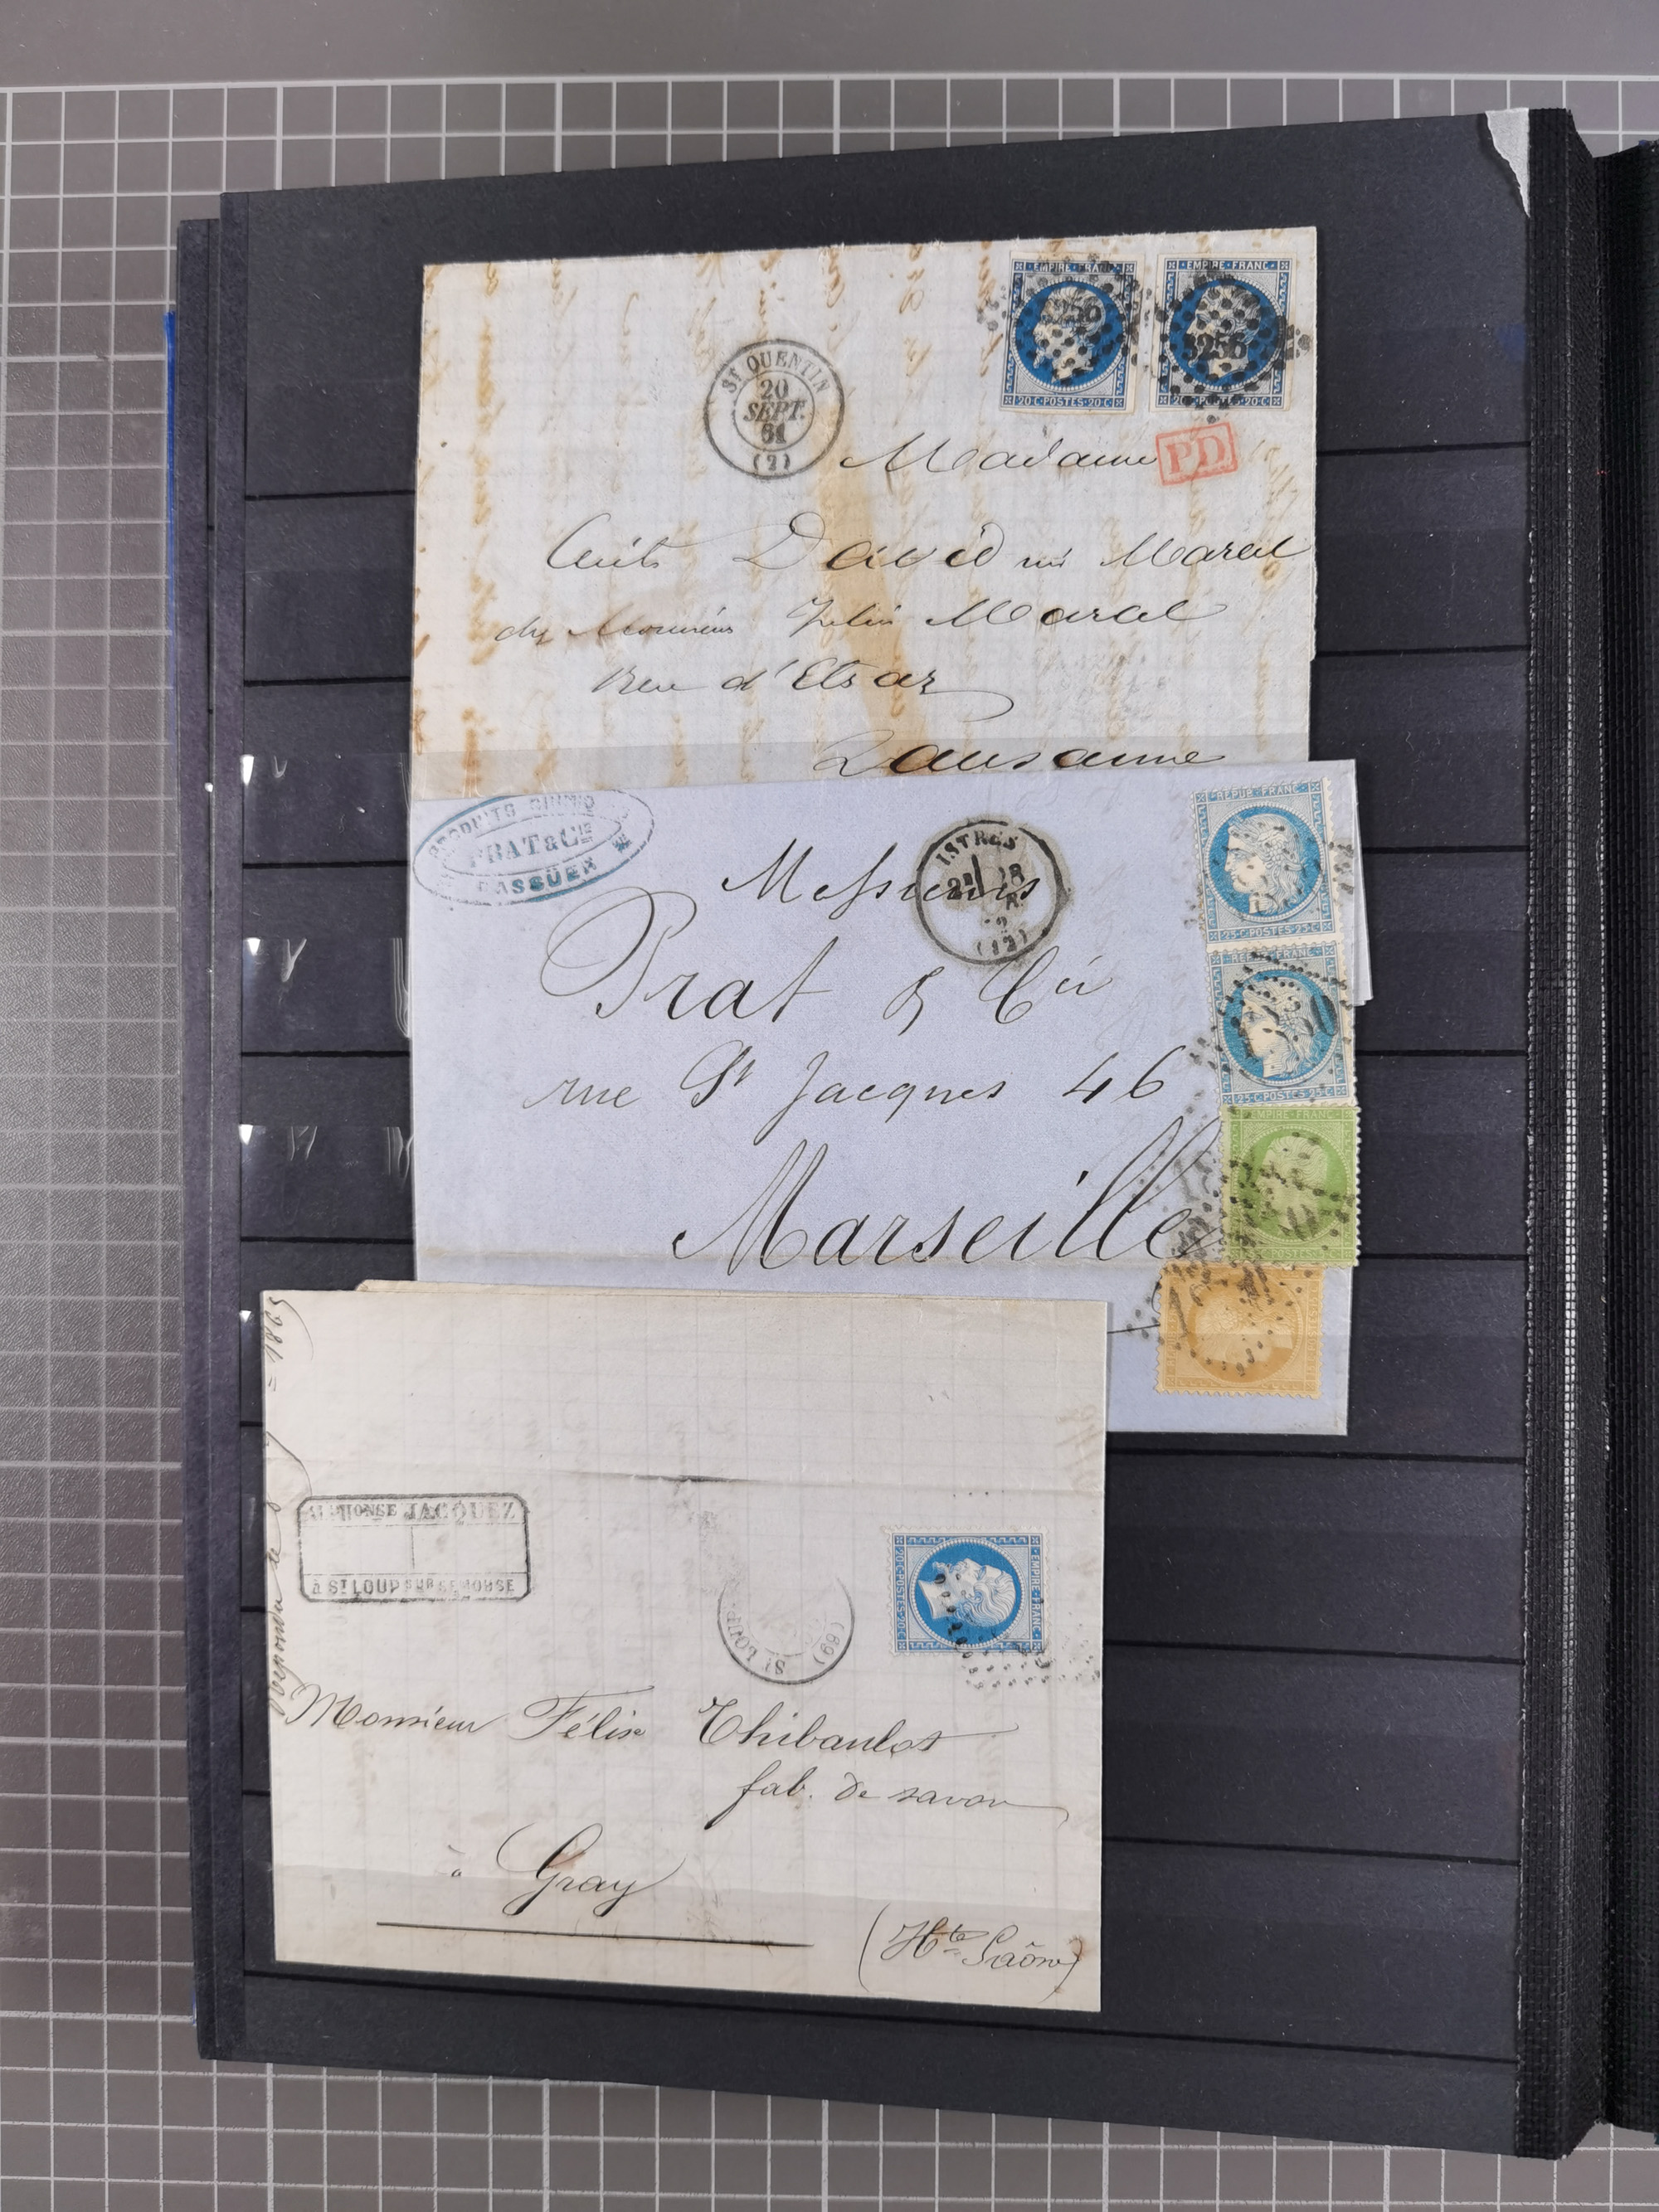 EMPIRE·FRANC
EMPIRE·FRANC·
3256
3256
20·C·POSTES·20·C
20·C·POSTES·20·C
ST QUENTIN
20
SEPT.
61
(2)
Madame
PD
David née Marcel
chez Monsieur Marcel
Rue d'Etraz
Lausanne
PRODUITS CHIMIQ
PRAT & CIE
RASSUEN
ISTRES
(12)
Messieurs
Prat & Cie
rue St Jacques 46
Marseille
REPUB·FRANC·
25·C·POSTES·25·C
REPUB·FRANC·
25·C·POSTES·25·C
EMPIRE·FRANC
1865
ALPHONSE JACQUEZ
à ST LOUP SUR SEMOUSE
ST LOUP
(69)
EMPIRE·FRANC·
20·C·POSTES·20·C
Monsieur Félix Thibaulot
fab. de savon
à Gray
(Hte Saône)